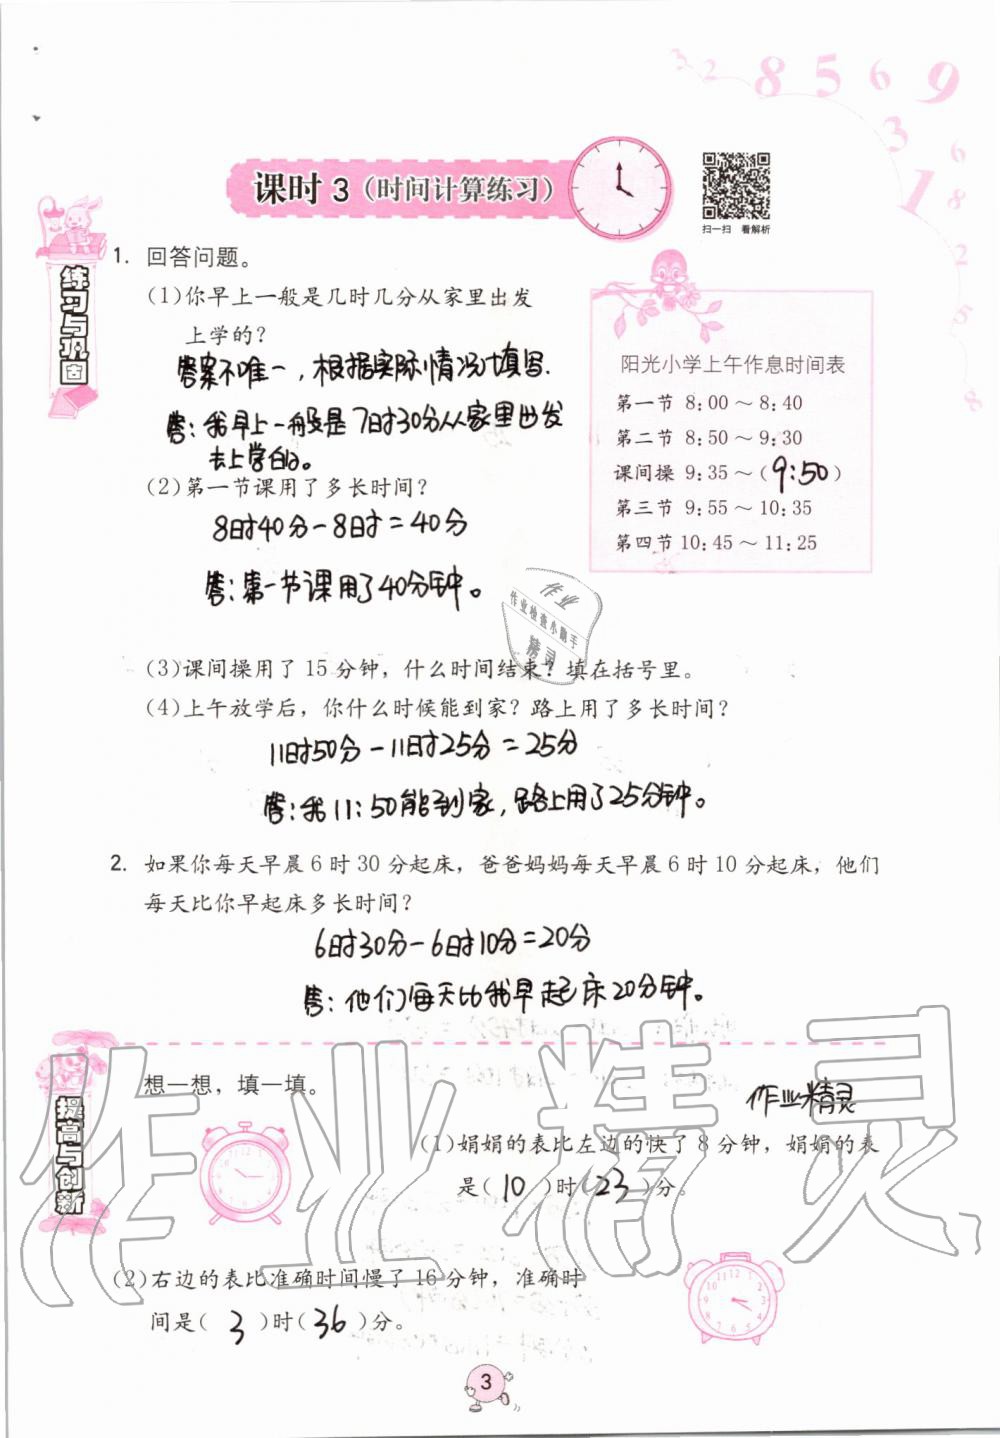 3 2 8 5 6 9
3 6
1 8
2
5
8
课时 3（时间计算练习）
扫一扫 看解析
练习与巩固
1. 回答问题。
（1）你早上一般是几时几分从家里出发
上学的？
答案不唯一，根据实际情况填写.
答：我早上一般是7时30分从家里出发
去上学的。
（2）第一节课用了多长时间？
8时40分－8时＝40分
答：第一节课用了40分钟。
阳光小学上午作息时间表
第一节 8:00～8:40
第二节 8:50～9:30
课间操 9:35～（9:50）
第三节 9:55～10:35
第四节 10:45～11:25
作业
作业检查小助手
精灵
（3）课间操用了 15 分钟，什么时间结束？填在括号里。
（4）上午放学后，你什么时候能到家？路上用了多长时间？
11时50分－11时25分＝25分
答：我11:50能到家，路上用了25分钟。
2. 如果你每天早晨 6 时 30 分起床，爸爸妈妈每天早晨 6 时 10 分起床，他们
每天比你早起床多长时间？
6时30分－6时10分＝20分
答：他们每天比我早起床20分钟。
作业精灵
提高与创新
想一想，填一填。
作业精灵
（1）娟娟的表比左边的快了 8 分钟，娟娟的表
是（10）时（23）分。
（2）右边的表比准确时间慢了 16 分钟，准确时
间是（3）时（36）分。
3